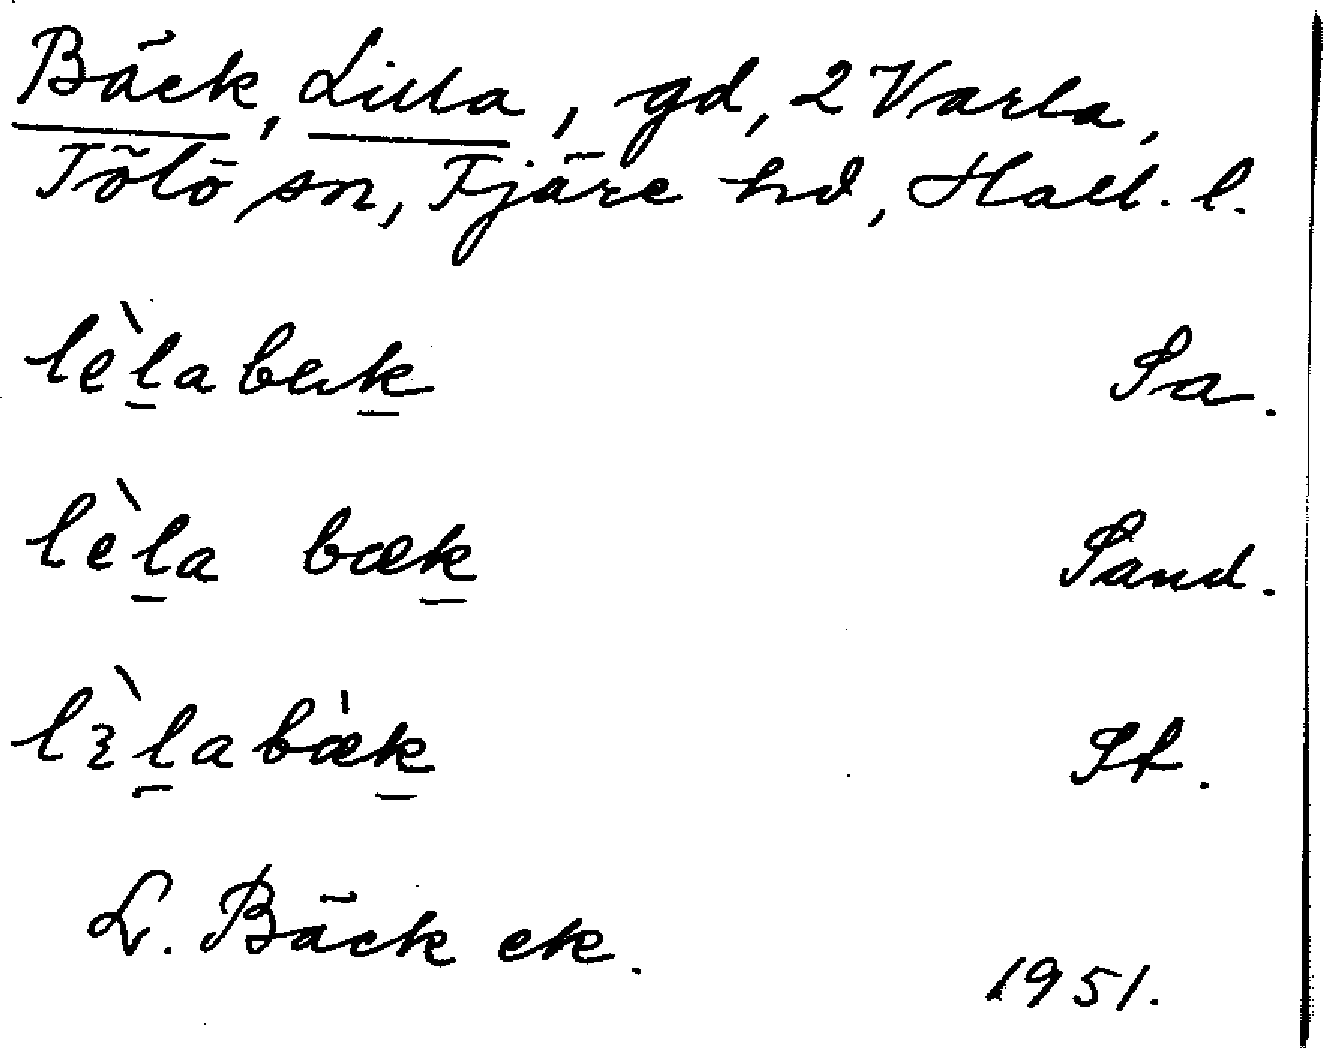 Bäck, Lilla, gd, 2 Varla,
Tölö sn, Fjäre hd, Hall. l.
lèlabæk Sa.
lèla bæk Sand.
lɜ̀labæ̀k St.
L. Bäck ek. 1951.